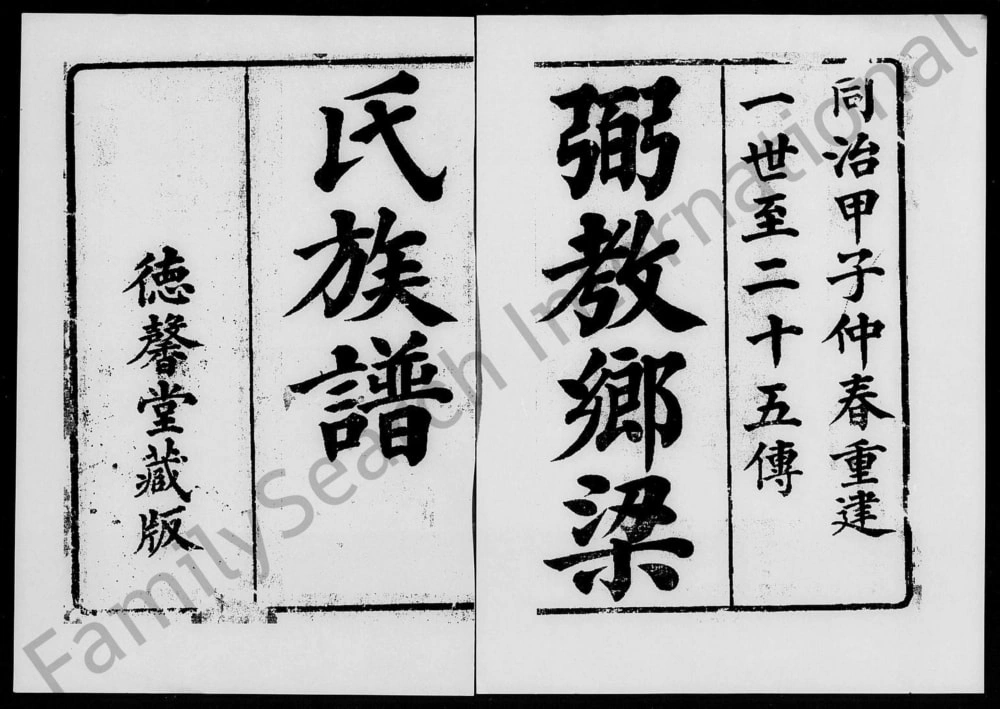 同治甲子仲春重建
一世至二十五傳
弼教鄉梁
氏族譜
德馨堂藏版
FamilySearch International